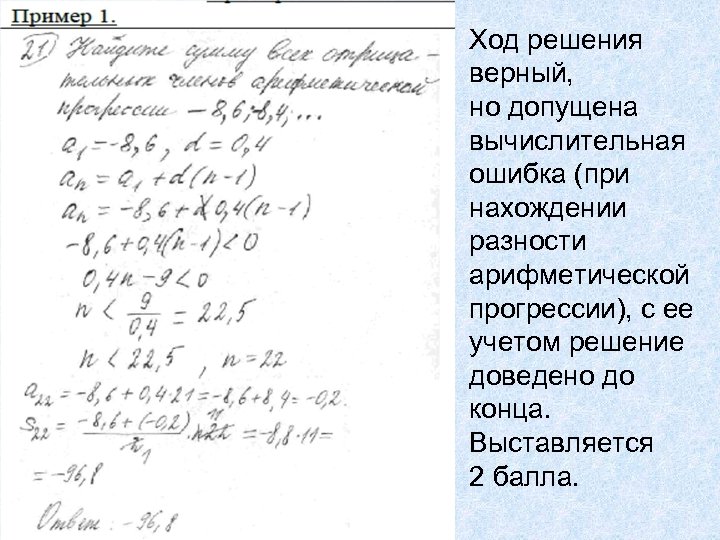 Пример 1.
21) Найдите сумму всех отрица-
тельных членов арифметической
прогрессии -8,6; -8,4; ...
a₁ = -8,6, d = 0,4
aₙ = a₁ + d(n-1)
aₙ = -8,6 + 0,4(n-1)
-8,6 + 0,4(n-1) < 0
0,4n - 9 < 0
n < 9/0,4 = 22,5
n < 22,5, n = 22
a₂₂ = -8,6 + 0,4·21 = -8,6 + 8,4 = -0,2.
S₂₂ = (-8,6 + (-0,2))/2 · 22 = -8,8·11 =
= -96,8
Ответ: -96,8
Ход решения
верный,
но допущена
вычислительная
ошибка (при
нахождении
разности
арифметической
прогрессии), с ее
учетом решение
доведено до
конца.
Выставляется
2 балла.